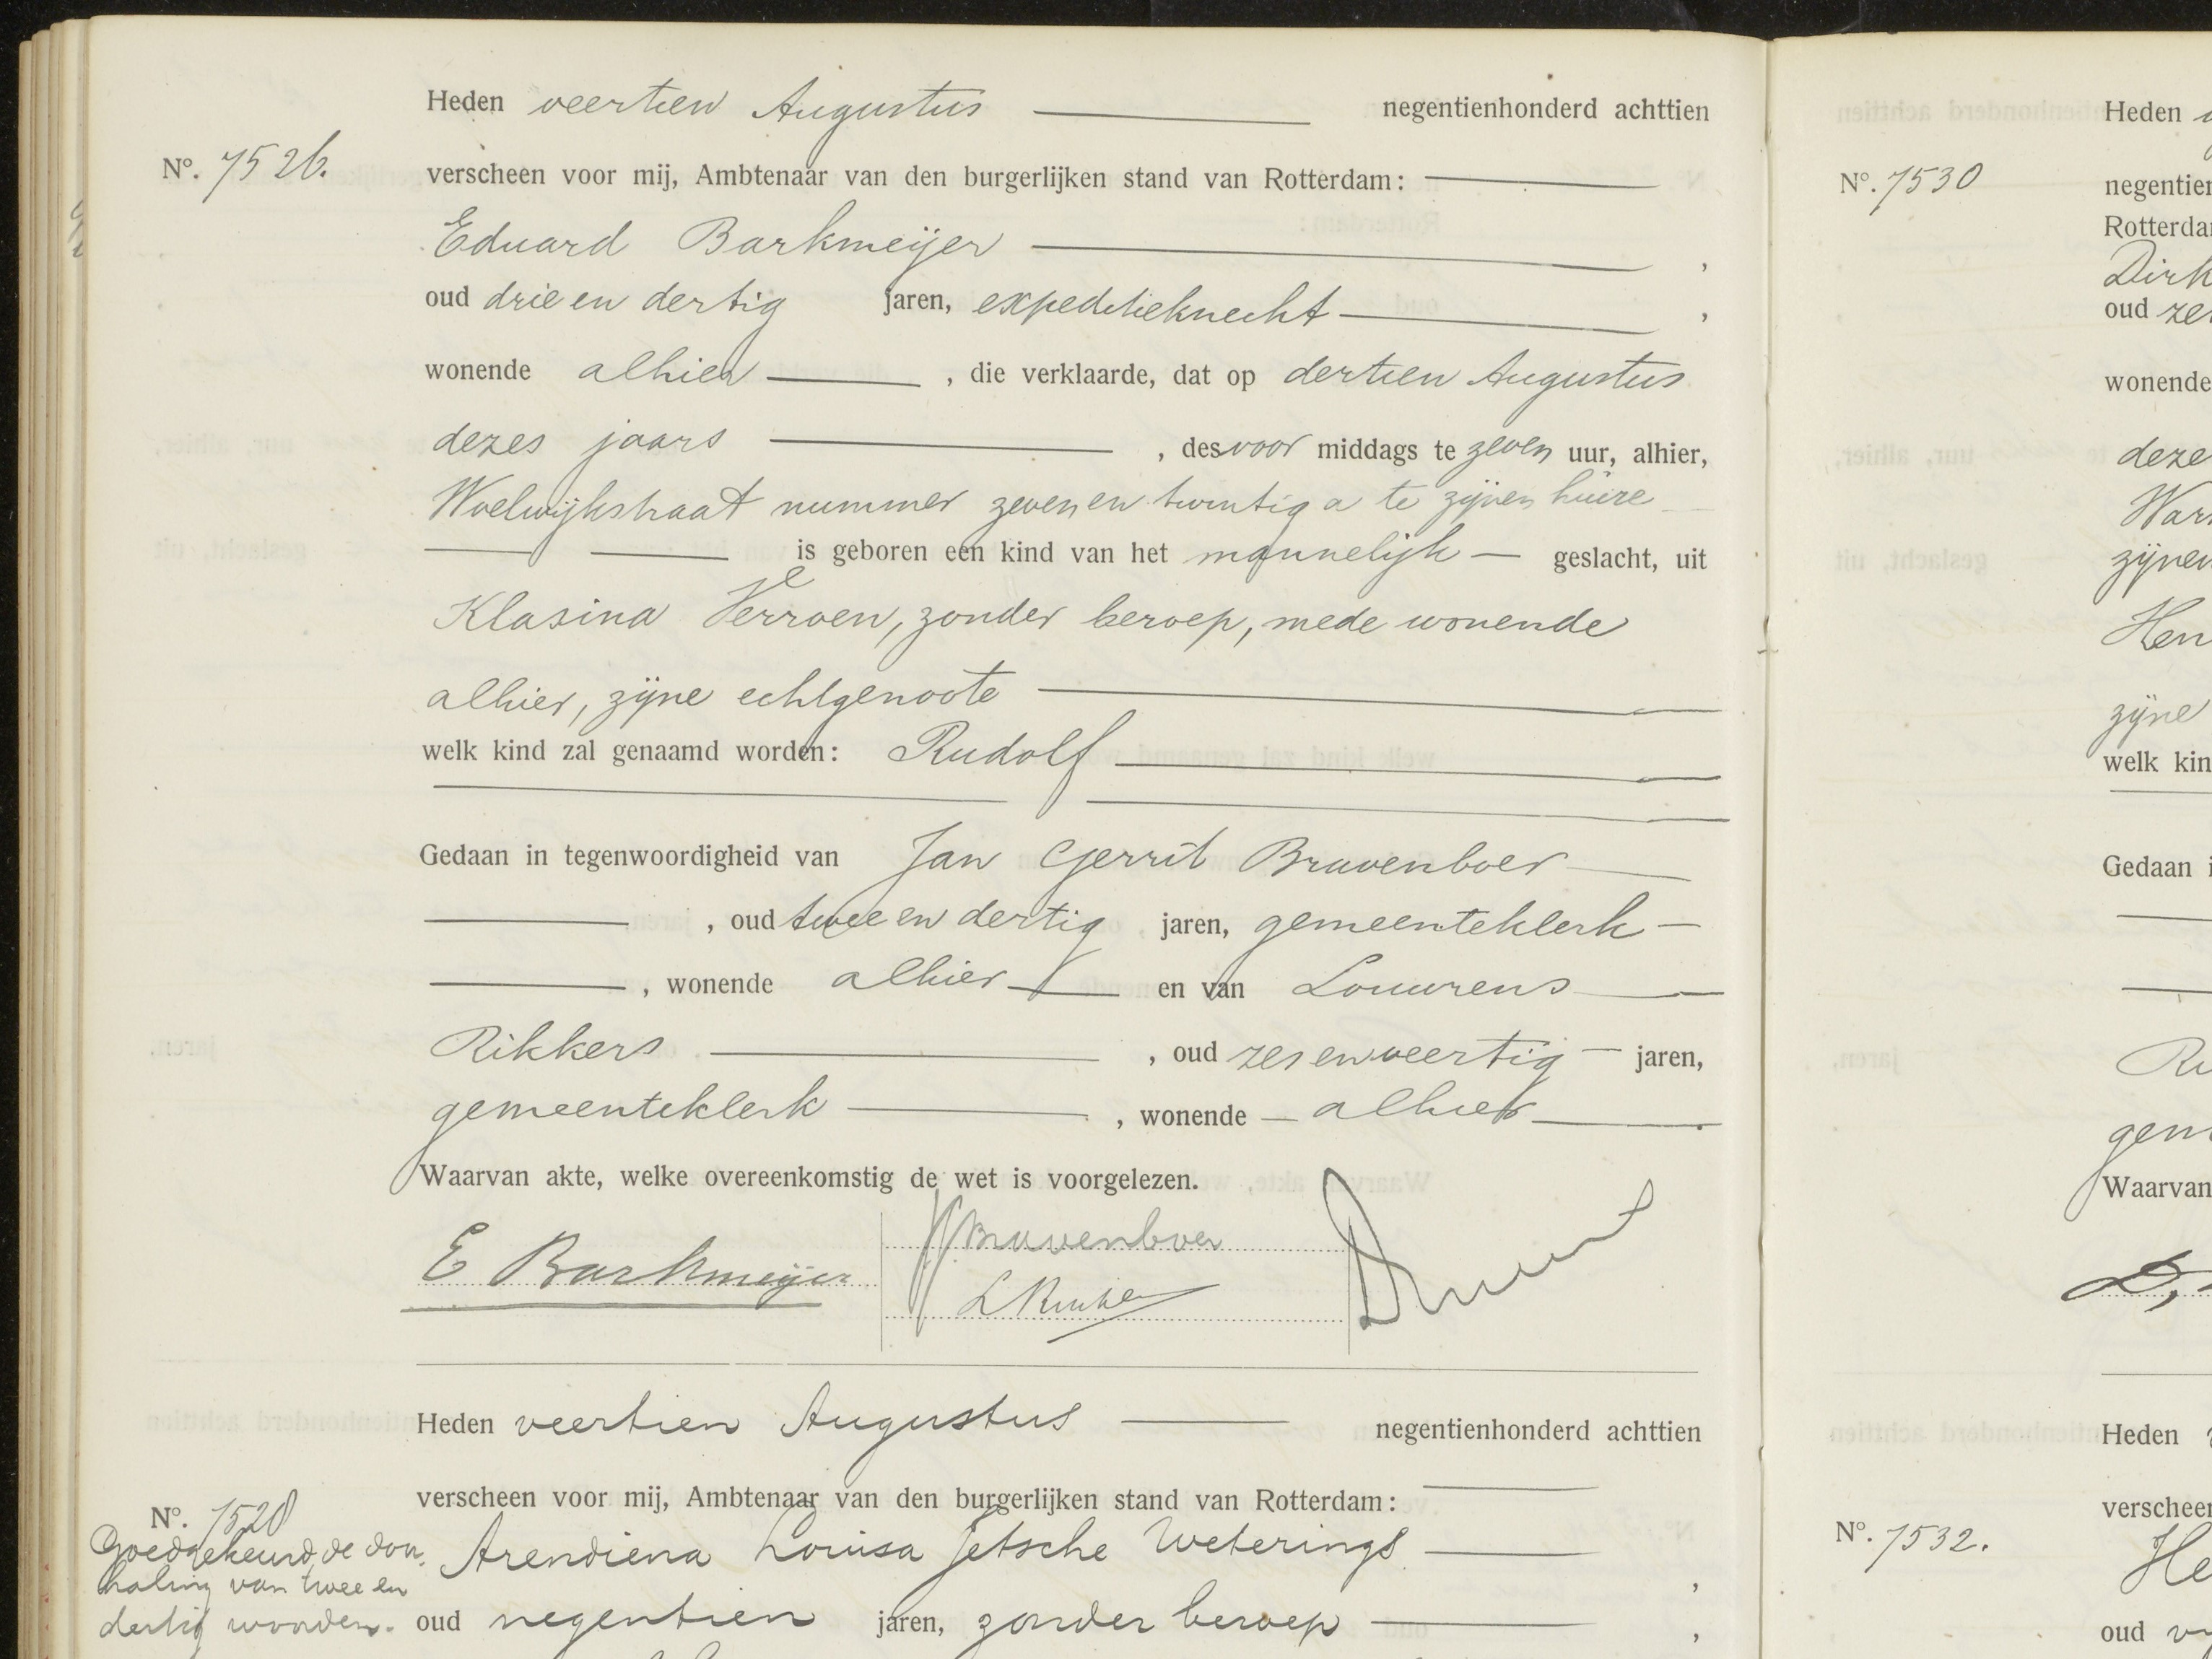 Heden veertien Augustus negentienhonderd achttien
No. 7526. verscheen voor mij, Ambtenaar van den burgerlijken stand van Rotterdam:
Eduard Barkmeijer ,
oud drie en dertig jaren, expeditieknecht ,
wonende alhier , die verklaarde, dat op dertien Augustus
dezes jaars , des voor middags te zeven uur, alhier,
Woelwijkstraat nummer zeven en twintig a te zijnen huize
is geboren een kind van het mannelijk geslacht, uit
Klasina Verroen, zonder beroep, mede wonende
alhier, zijne echtgenoote
welk kind zal genaamd worden: Rudolf
Gedaan in tegenwoordigheid van Jan Gerrit Bravenboer
, oud twee en dertig jaren, gemeenteklerk
, wonende alhier en van Lourens
Rikkers , oud zes en veertig jaren,
gemeenteklerk , wonende alhier
Waarvan akte, welke overeenkomstig de wet is voorgelezen.
E Barkmeijer
Bravenboer
Heden veertien Augustus negentienhonderd achttien
verscheen voor mij, Ambtenaar van den burgerlijken stand van Rotterdam:
No. 7528
Goedgekeurd de door
haling van twee en
dertig woorden.
Arendiena Louisa Jetsche Weterings ,
oud negentien jaren, zonder beroep ,
Heden
No. 7530 negentien
Rotterda
Dirk
oud
wonende
deze
War
zijnen
Hen
zijne
welk kin
Gedaan i
gem
Waarvan
Heden
verscheen
No. 7532.
He
oud